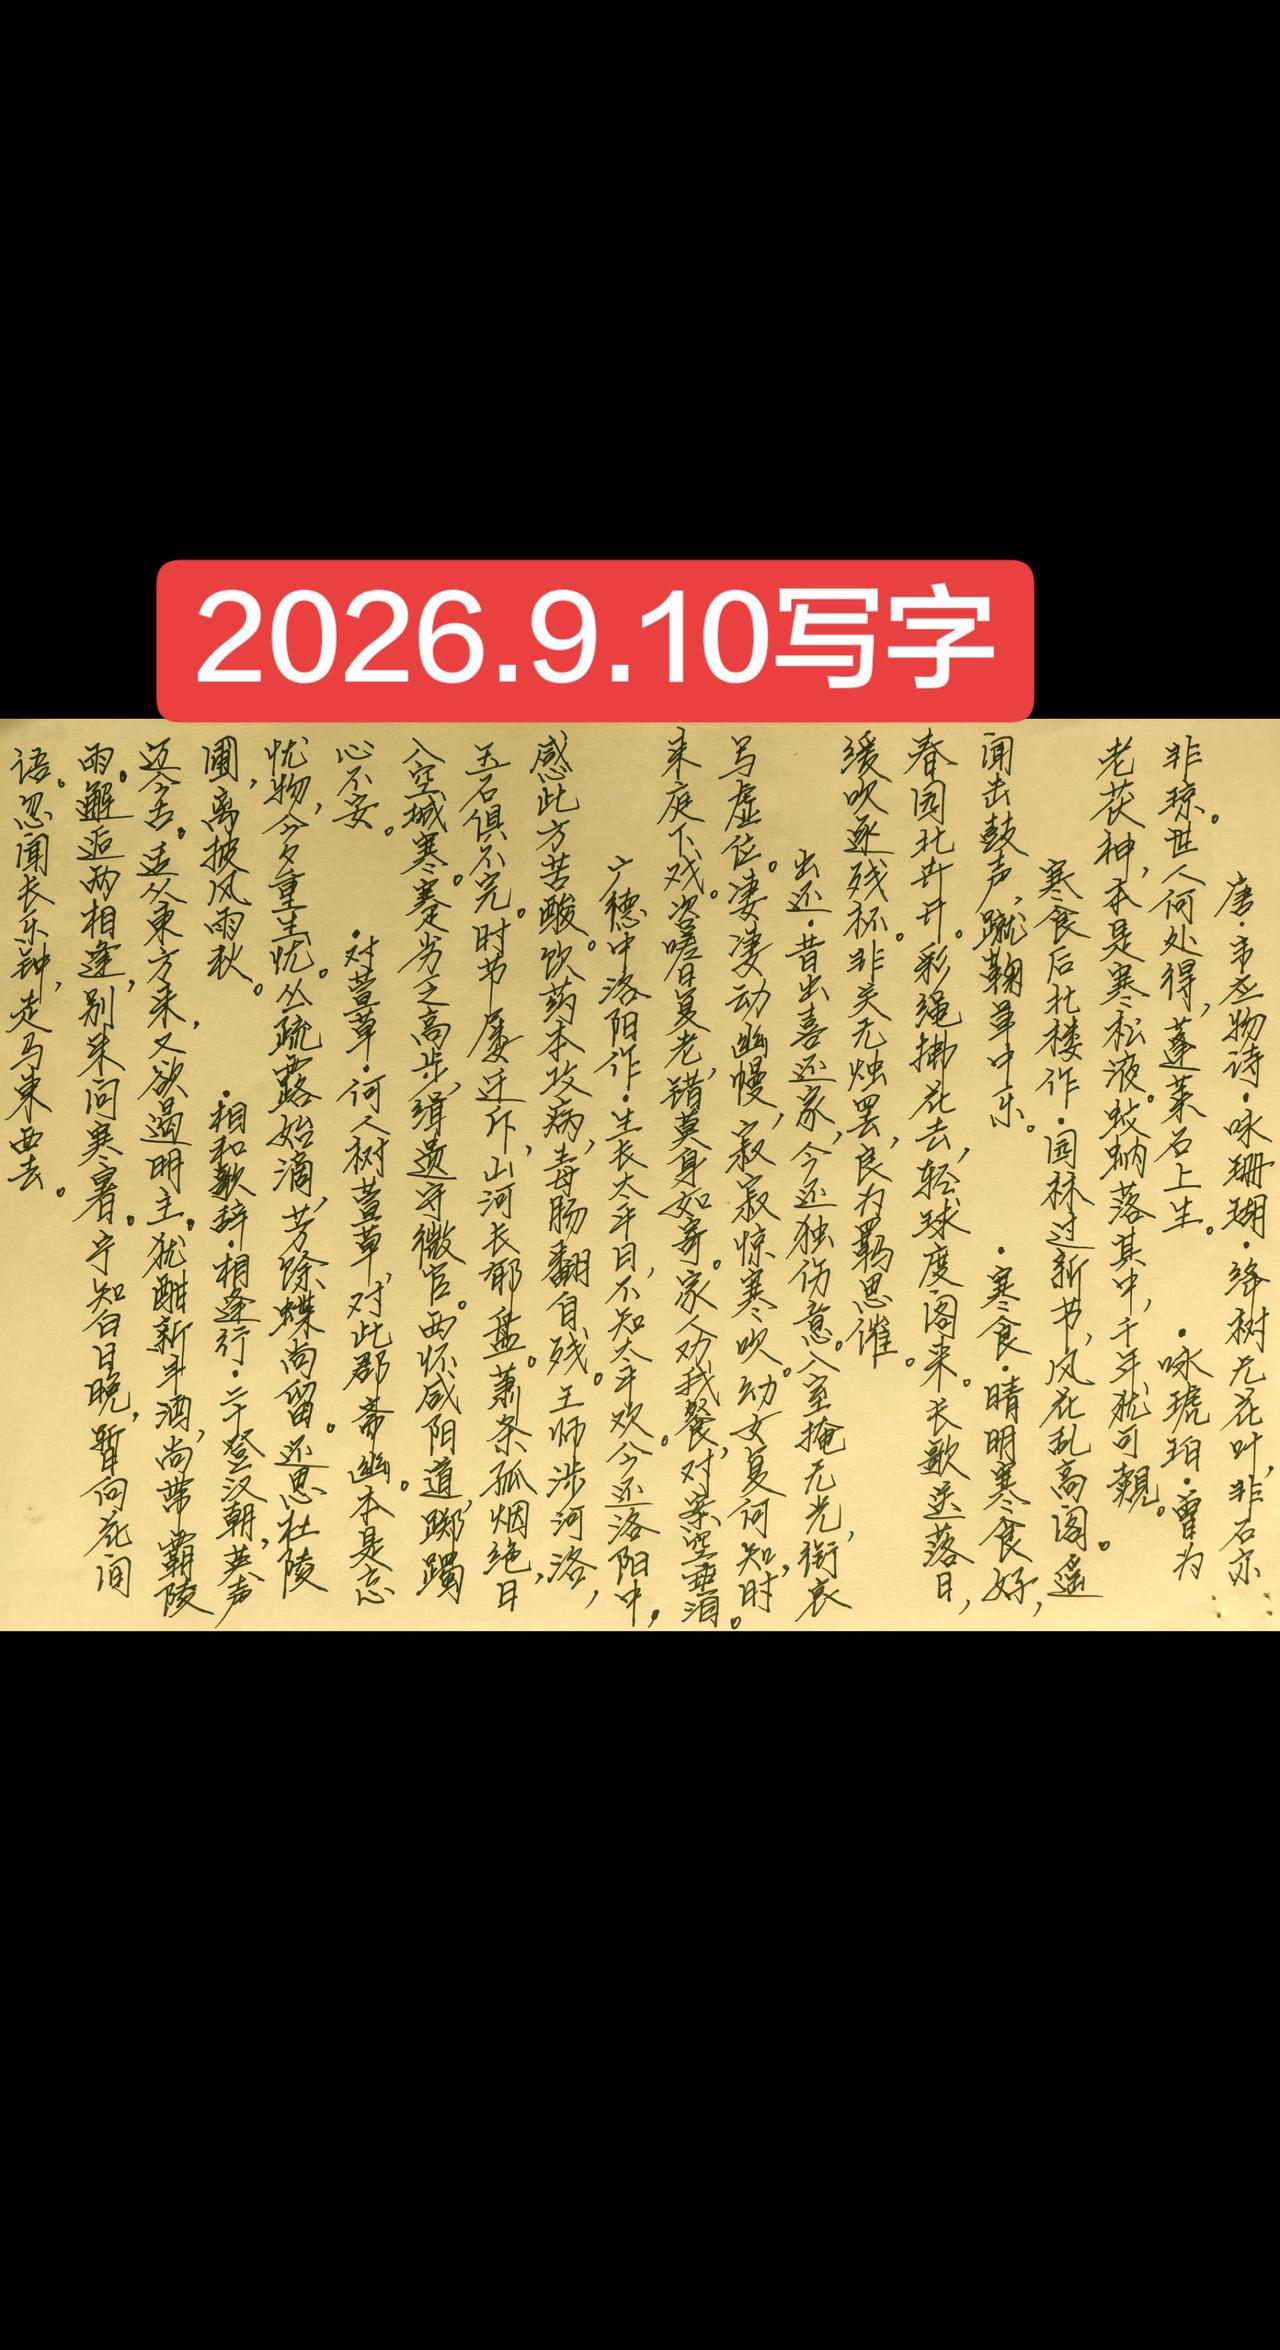 2026.9.10写字
唐·韦应物诗·咏珊瑚·绛树无花叶,非石亦
非琼。世人何处得,蓬莱石上生。·咏琥珀·曾为
老茯神,本是寒松液。蚊蚋落其中,千年犹可觌。
寒食后北楼作·园林过新节,风花乱高阁。遥
闻击鼓声,蹴鞠草中乐。·寒食·晴明寒食好,
春园北卉开。彩绳拂花去,轻球度阁来。长歌送落日,
缓吹逐残杯。非关无烛罢,良为羁思催。
出还·昔出喜还家,今还独伤意。入室掩无光,衔哀
写虚位。凄凄动幽幔,寂寂惊寒吹。幼女复何知,时
来庭下戏。咨嗟日复老,错莫身如寄。家人劝我餐,对案空垂泪。
广德中洛阳作·生长太平日,不知太平欢。今还洛阳中,
感此方苦酸。饮药本攻病,毒肠翻自残。王师涉河洛,
玉石俱不完。时节屡迁斥,山河长郁盘。萧条孤烟绝,日
入空城寒。蹇劣乏高步,缉遗守微官。西怀咸阳道,踯躅
心不安。·对萱草·何人树萱草,对此郡斋幽。本是忘
忧物,今夕重生忧。丛疏露始滴,芳馀蝶尚留。还思杜陵
圃,离披风雨秋。·相和歌辞·相逢行·二十登汉朝,英声
迈今古。适从东方来,又欲谒明主。犹酣新丰酒,尚带霸陵
雨。邂逅两相逢,别来问寒暑。宁知白日晚,暂向花间
语。忽闻长乐钟,走马东西去。